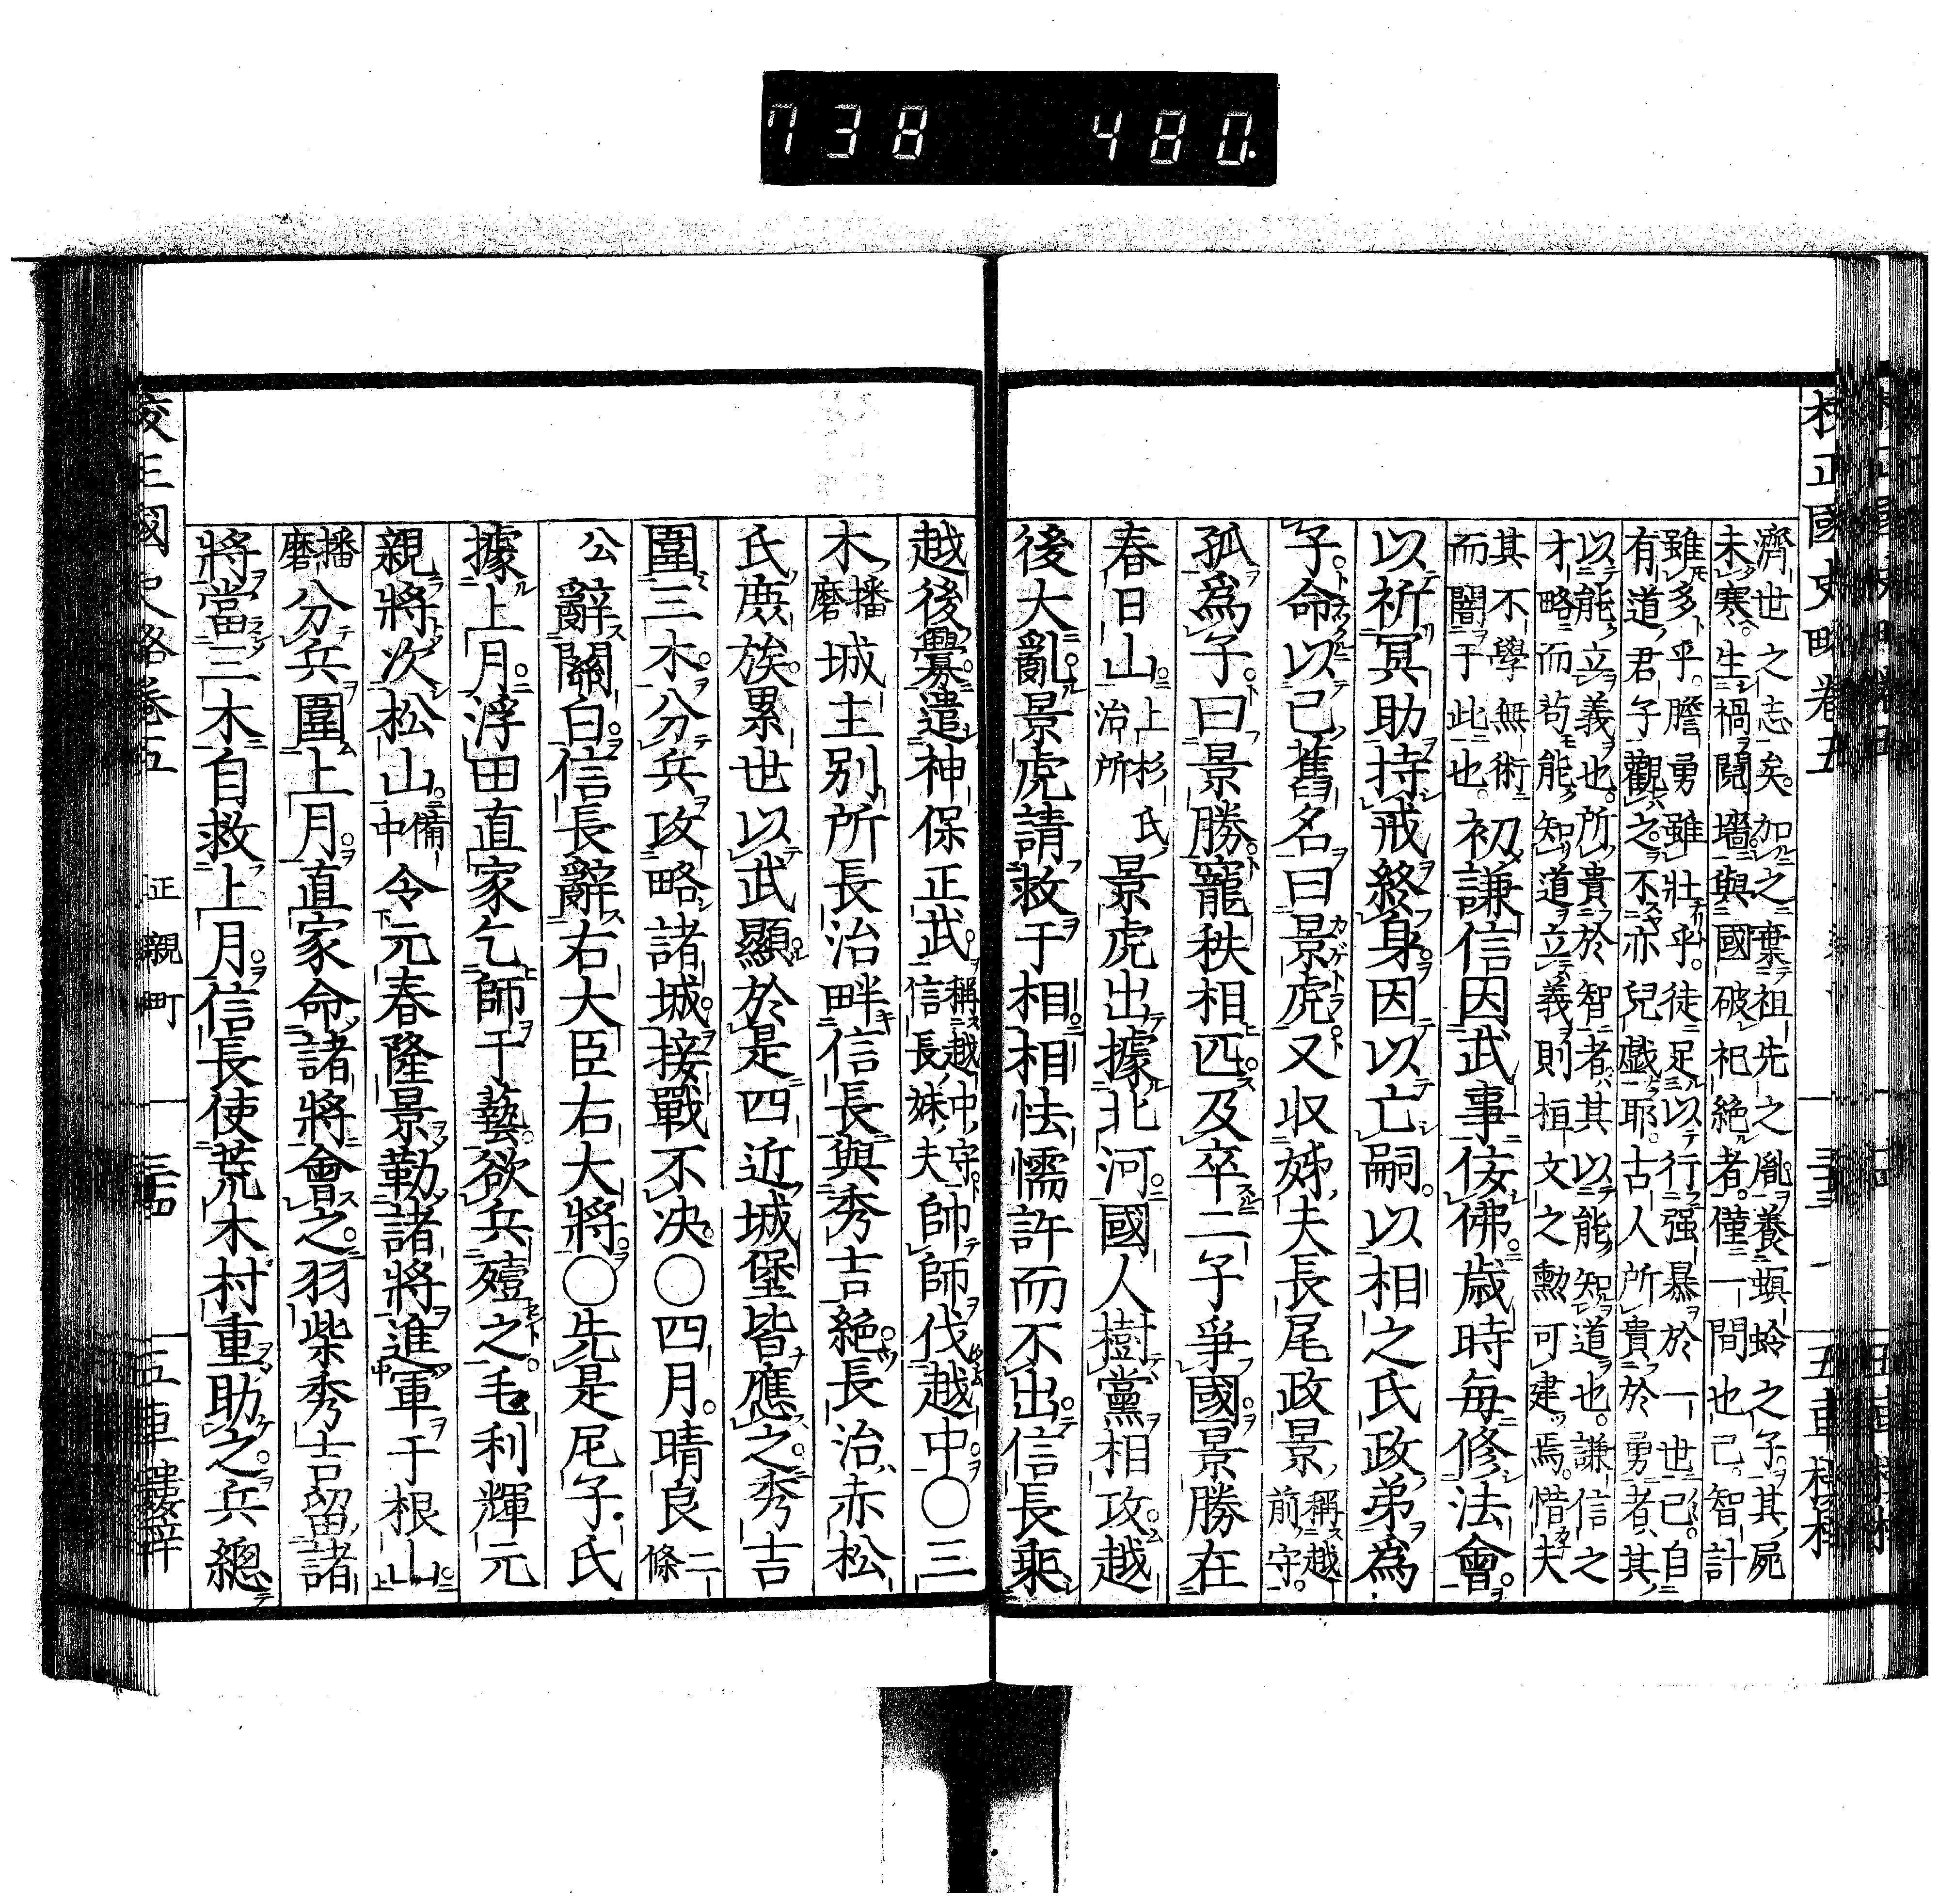 738 480.
濟世之志矣加之棄祖先之胤養螟蛉之子其屍
未寒生禍鬩墻與國破祀絶者僅一間也已智計
雖多乎膽勇雖壯乎徒足以行强暴於一世已自
有道君子觀之不亦兒戯耶古人所貴於勇者其
以能立義也所貴於智者其以能知道也謙信之
才略而苟能知道立義則桓文之勲可建焉惜夫
其不學無術
而闇于此也 初謙信因武事侫佛歳時毎修法會
以祈冥助持戒終身因以亡嗣以相之氏政弟為
子命以己舊名曰景虎又収姊夫長尾政景稱越前守
孤為子曰景勝寵秩相匹及卒二子爭國景勝在
春日山上杉氏治所景虎出據北河國人樹黨相攻越
後大亂景虎請救于相相怯懦許而不出信長乘
越後釁遣神保正武稱越中守信長妹夫帥師伐越中〇三
木播磨城主別所長治畔信長與秀吉絶長治赤松
氏庶族累世以武顯於是四近城堡皆應之秀吉
圍三木分兵攻略諸城接戰不决〇四月晴良二條
公辭關白信長辭右大臣右大將〇先是尼子氏
據上月浮田直家乞師于藝欲兵殪之毛利輝元
親將次松山備中令元春隆景勒諸將進軍于根山
播磨分兵圍上月直家命諸將會之羽柴秀吉留諸
將當三木自救上月信長使荒木村重助之兵總
校正國史略卷五
正親町
三十四
五車樓梓